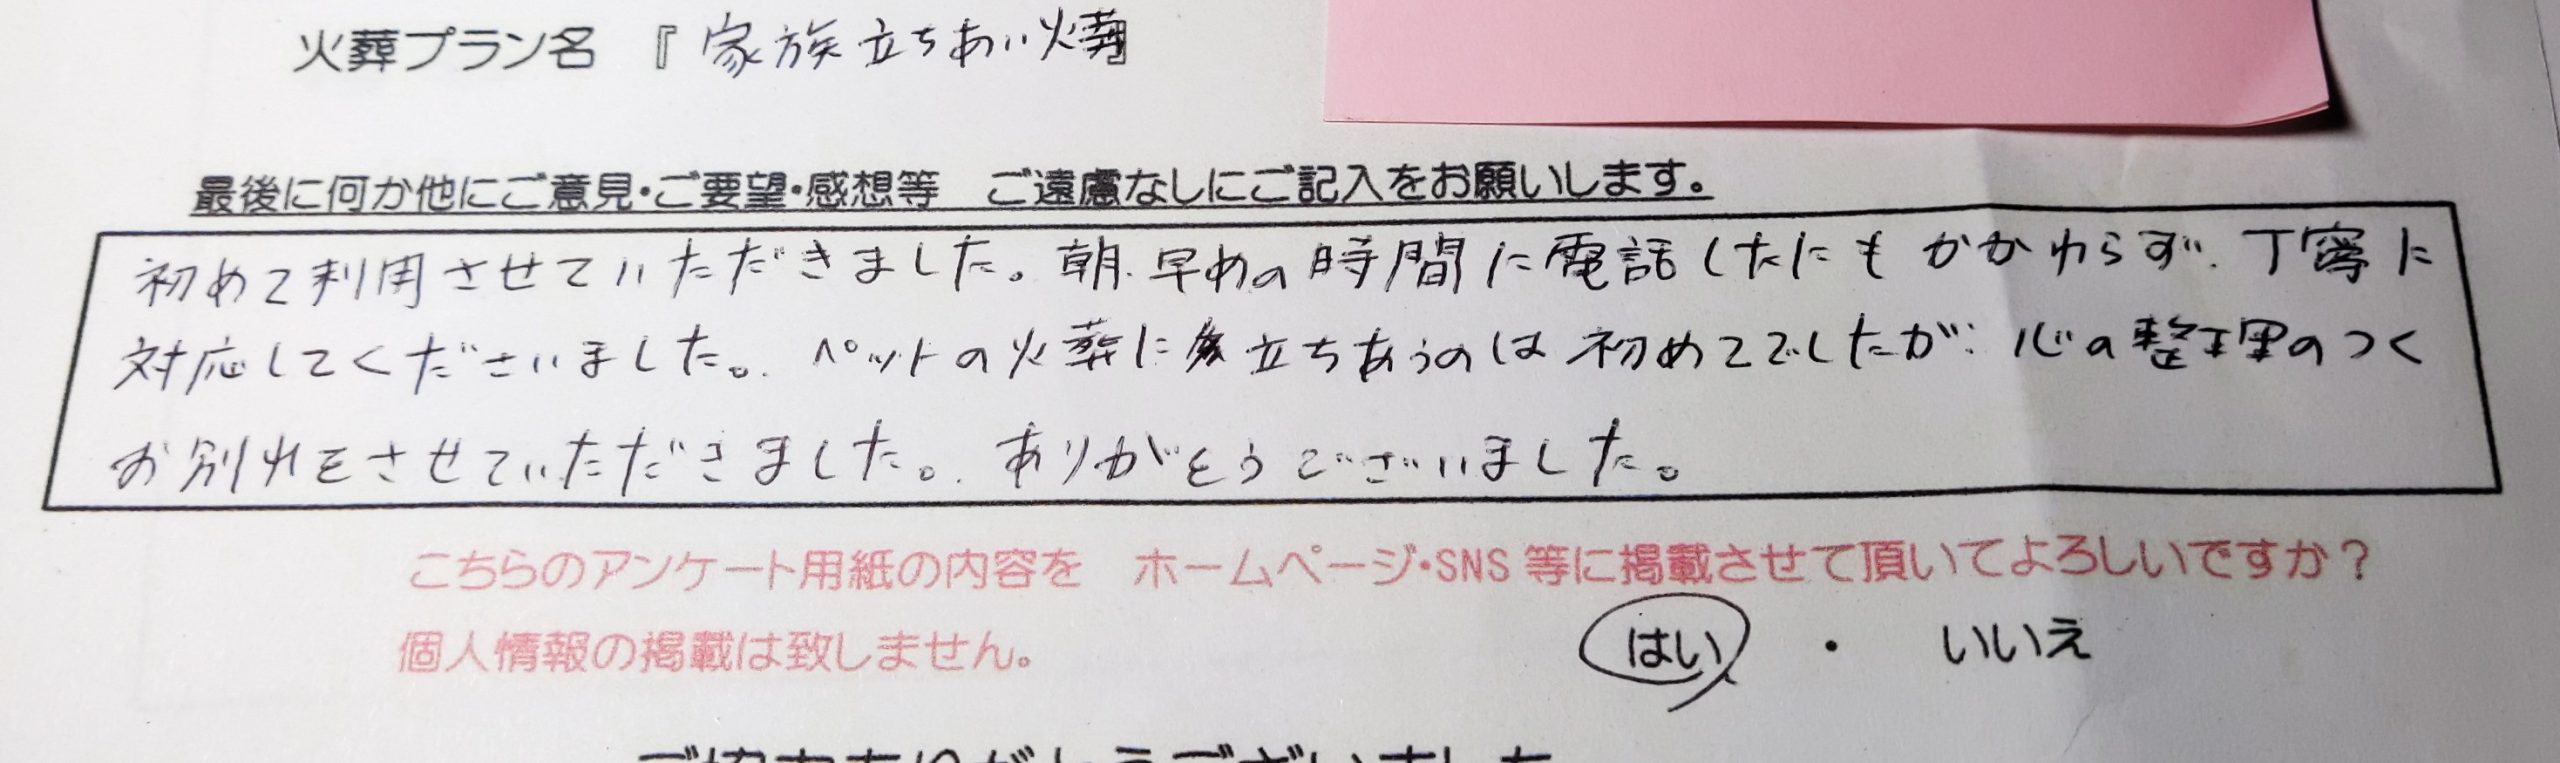 火葬プラン名 『家族立ちあい火葬』
最後に何か他にご意見・ご要望・感想等 ご遠慮なしにご記入をお願いします。
初めて利用させていただきました。朝、早めの時間に電話したにもかかわらず、丁寧に
対応してくださいました。ペットの火葬に立ちあうのは初めてでしたが、心の整理のつく
お別れをさせていただきました。ありがとうございました。
こちらのアンケート用紙の内容を ホームページ・SNS 等に掲載させて頂いてよろしいですか？
個人情報の掲載は致しません。 はい ・ いいえ
ご協力ありがとうございました